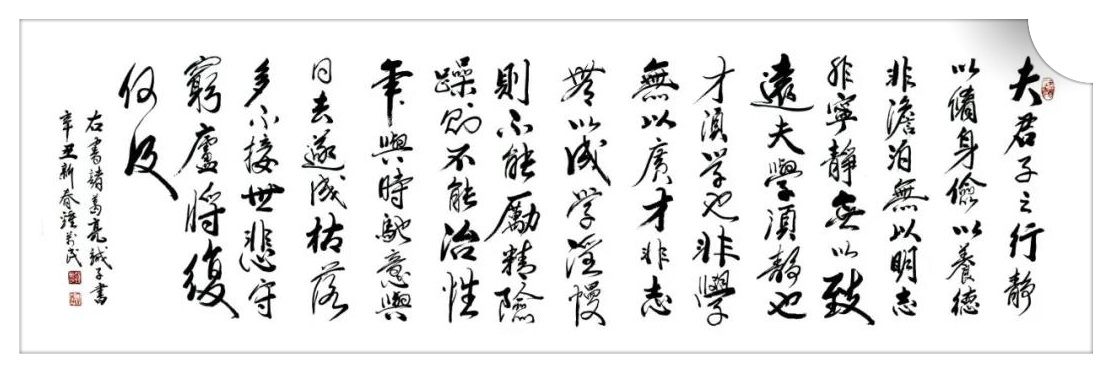 夫君子之行静
以脩身儉以養徳
非澹泊無以明志
非寧靜無以致
遠夫學須静也
才須学也非學
無以廣才非志
無以成学淫慢
則不能勵精險
躁則不能治性
年與時馳意與
日去遂成枯落
多不接世悲守
窮廬將復
何及
右書諸葛亮誡子書
辛丑新春